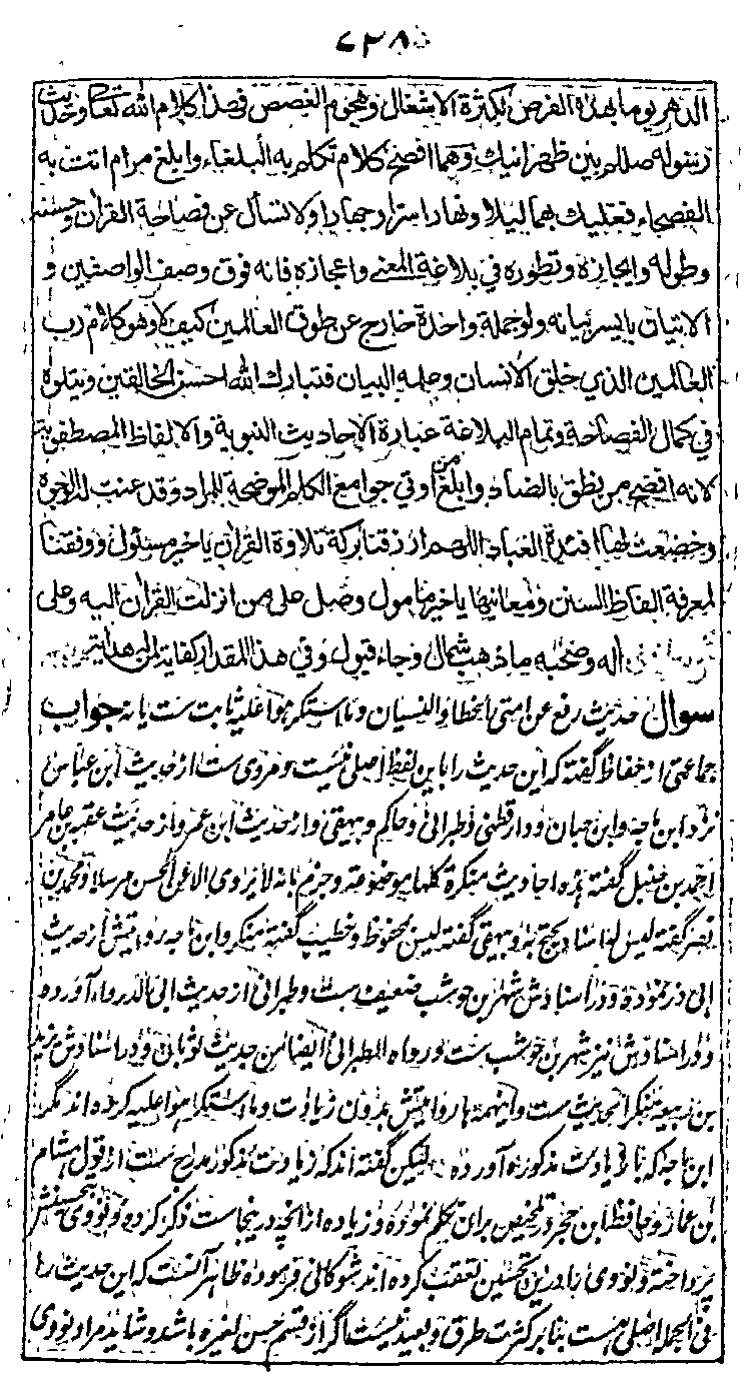 ۷۲۸
الدهر يوما بهذا الغرض لكثرة الاشغال وهجوم الغصص فهذا كلام الله تعالى وحديث
رسوله صللم بين ظهرانيك وهما افصح كلام تكلم به البلغاء وابلغ مرام اتت به
الفصحاء فعليك بهما ليلا ونهارا سرا وجهارا ولا تسأل عن فصاحة القران وحسنه
وطوله وايجازه وتطوره في بلاغة المعنى واعجازه فانه فوق وصف الواصفين و
الاتيان بايسر بيانه ولو جملة واحدة خارج عن طوق العالمين كيف لا وهو كلام رب
العالمين الذي خلق الانسان وعلمه البيان فتبارك الله احسن الخالقين ويتلوه
في كمال الفصاحة وتمام البلاغة عبارة الاحاديث النبوية والالفاظ المصطفوية
لانه افصح من نطق بالضاد وابلغ من اوتي جوامع الكلم الموضحة للمراد وقد عنت له الوجوه
وخضعت لها افئدة العباد اللهم ارزقنا بركة تلاوة القران يا خير مسئول ووفقنا
لمعرفة الفاظ السنن ومعانيها يا خير مامول وصل على من انزلت القران اليه وعلى
اله وصحبه ما ذهب شمال وجاء قبول وفي هذا المقدار كفاية لمن له هداية
سوال حدیث رفع عن امتی الخطا والنسیان وما استکرهوا علیه ثابت ست یا نه جواب
جماعتی از حفاظ گفته که این حدیث را باین لفظ اصلی نیست و مروی ست از حدیث ابن عباس
نزد ابن ماجه و ابن حبان و دارقطنی و طبرانی و حاکم و بیهقی و از حدیث ابن عمر و از حدیث عقبه بن عامر
احمد بن حنبل گفته هذه احادیث منکرة کلها موضوعة و جزم بانه لا یروی الا عن الحسن مرسلا و محمد بن
نصر گفته لیس له اسناد یحتج به و بیهقی گفته لیس بمحفوظ و خطیب گفته منکر و ابن ماجه روایتش از حدیث
ابی ذر نموده و در اسنادش شهر بن حوشب ضعیف ست و طبرانی از حدیث ابی الدرداء آورده
و در اسنادش نیز شهر بن حوشب ست و رواه الطبرانی ایضا من حدیث ثوبان و در اسنادش یزید
بن ربیعه منکر الحدیث ست و اینهمه ها روایتش بدون زیادت وما استکرهوا علیه کرده اند مگر
ابن ماجه که با زیادت مذکوره آورده لیکن گفته اند که زیادت مذکور مدرج ست از قول هشام
بن عمار و حافظ ابن حجر در تلخیص بران تکلم نموده و زیاده از انچه درینجاست ذکر کرده و نووی بتحسینش
پرداخته و نووی را درین تحسین تعقب کرده اند شوکانی فرموده ظاهر آنست که این حدیث را
فی الجمله اصلی هست بنا بر کثرت طرق و بعید نیست که اگر از قسم حسن لغیره باشد و شاید مراد نووی